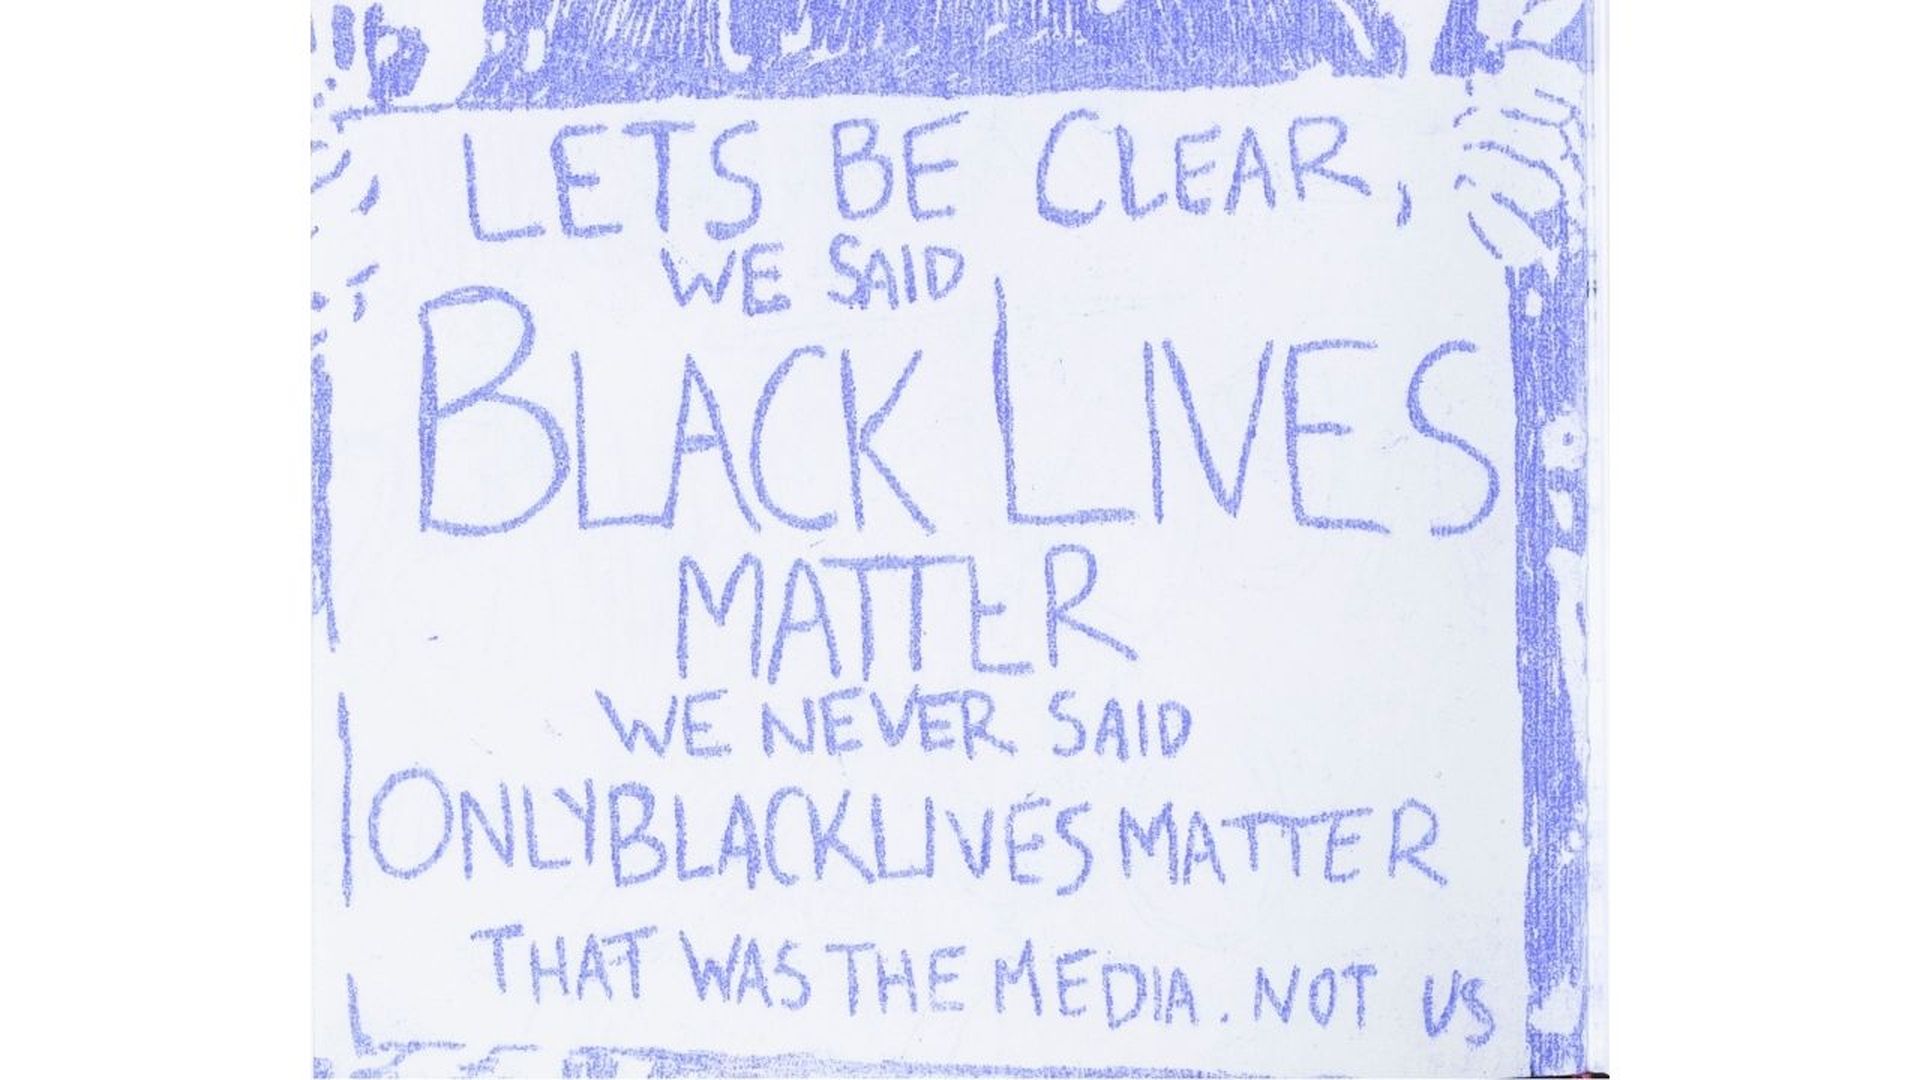 LETS BE CLEAR,
WE SAID
BLACK LIVES
MATTER
WE NEVER SAID
ONLY BLACK LIVES MATTER
THAT WAS THE MEDIA. NOT US